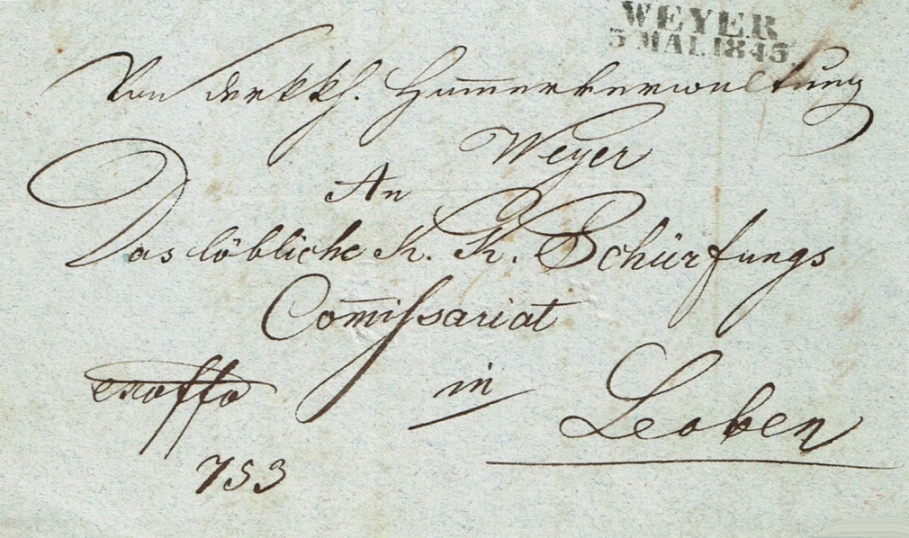 WEYER
5 MAI.1845.
Von der kk. Ham̄erverwaltung
Weyer
An
Das löbliche K. K. Schürfungs
Com̄issariat
exoffo in Leoben
753